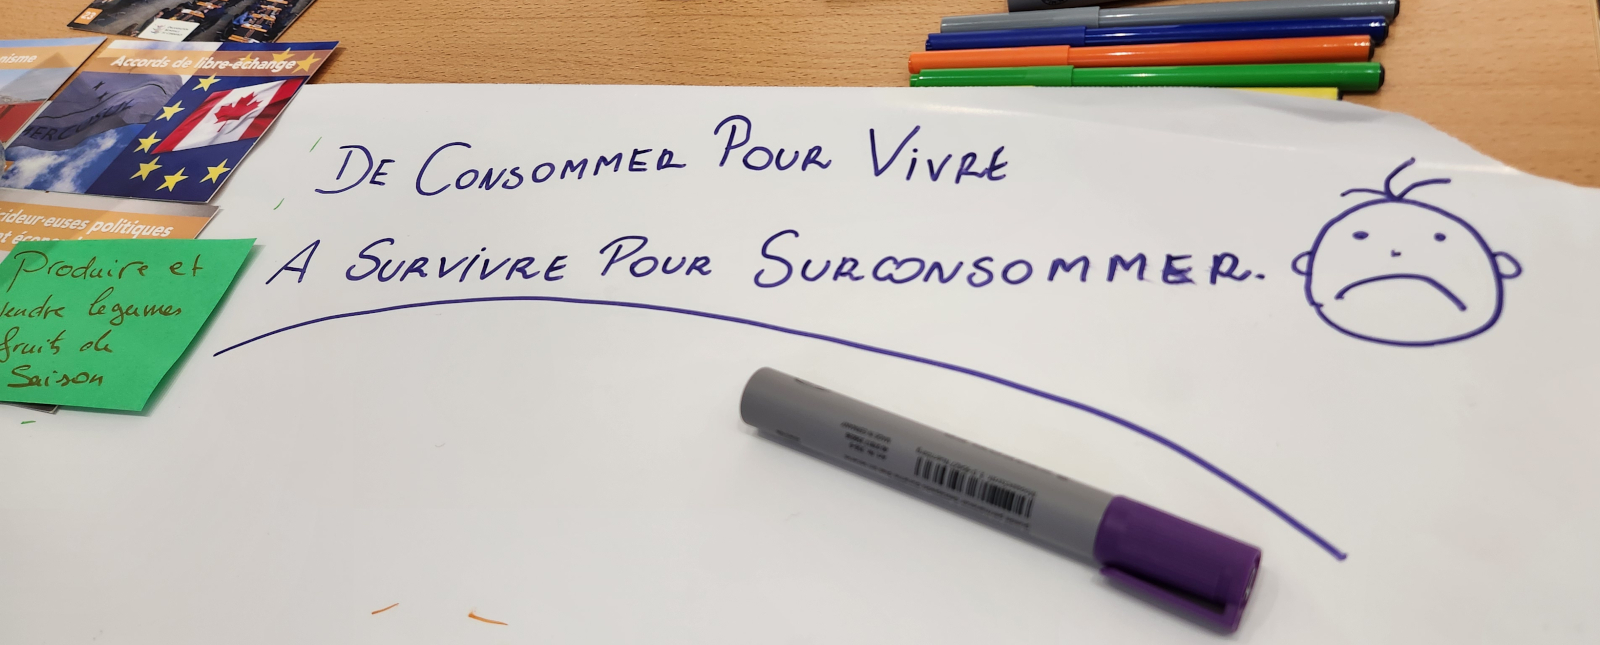 nisme
Accords de libre-échange
MERCOSUR
cideur·euses politiques
et écono
Produire et
Vendre légumes
fruits de
Saison
DE CONSOMMER POUR VIVRE
A SURVIVRE POUR SURCONSOMMER.